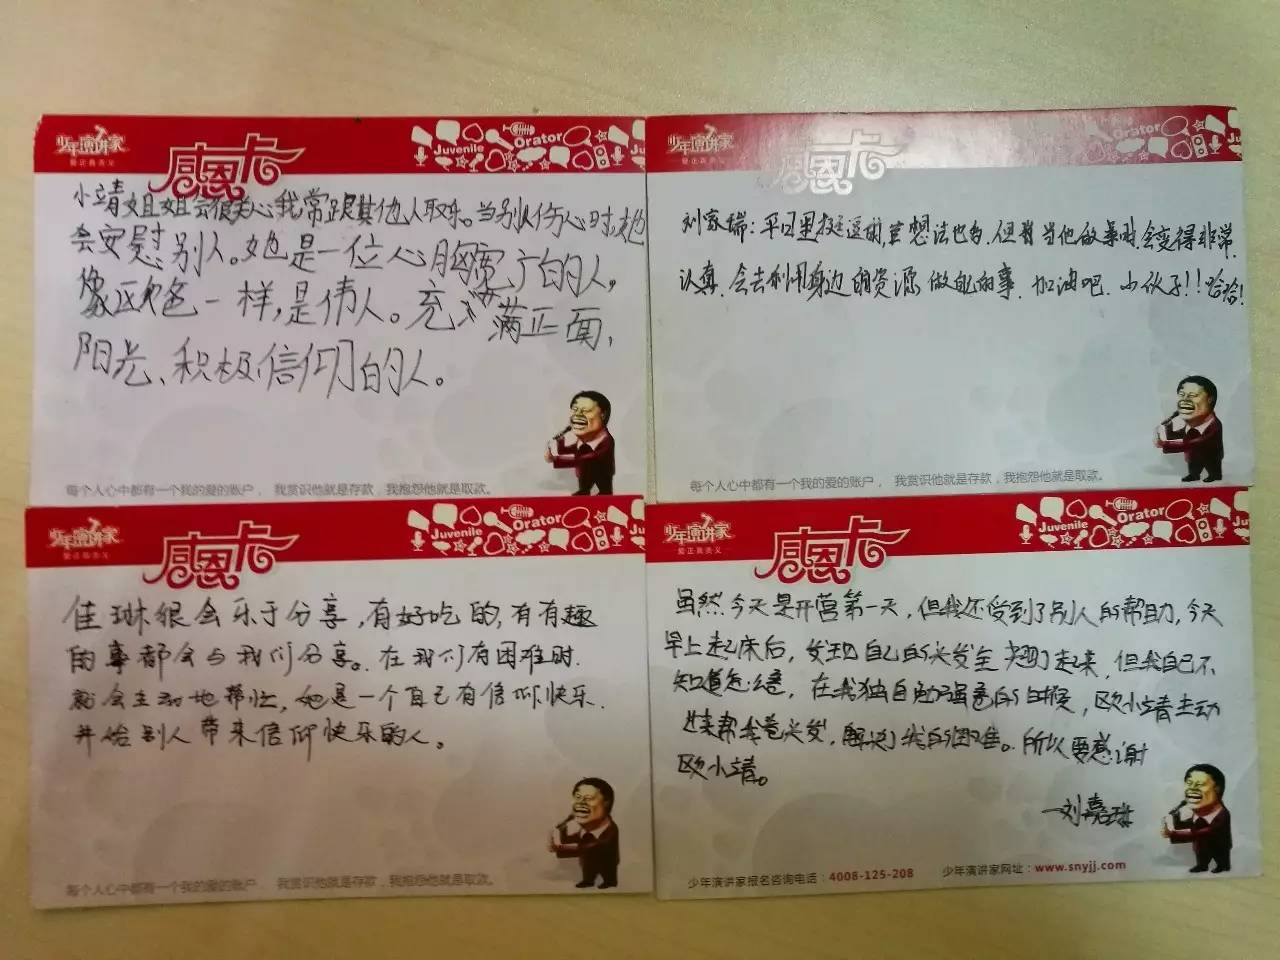 少年演讲家
爱正我美义
感恩卡
Juvenile
Orator
小靖姐姐会很关心我,常跟其他人取乐。当别人伤心时,她
会安慰别人。她是一位心胸宽广的人,
像正一样,是伟人。充满正面,
阳光、积极信仰的人。
每个人心中都有一个我的爱的账户, 我赏识他就是存款,我抱怨他就是取款。
少年演讲家
感恩卡
Juvenile
Orator
刘家瑞:平日里挺逗的,且想法也多,但当他做事时,会变得非常
认真,会去利用身边的资源做的事.加油吧,小伙子!!哈哈!
每个人心中都有一个我的爱的账户, 我赏识他就是存款,我抱怨他就是取款。
少年演讲家
爱正我美义
感恩卡
Juvenile
Orator
佳琳很会乐于分享,有好吃的,有有趣
的事都会与我们分享。在我们有困难时.
就会主动地帮忙,她是一个自己有信仰快乐.
并给别人带来信仰快乐的人。
每个人心中都有一个我的爱的账户, 我赏识他就是存款,我抱怨他就是取款。
少年演讲家
爱正我美义
感恩卡
Juvenile
Orator
虽然今天是开营第一天,但我还受到了别人的帮助,今天
早上起床后,发现自己的头发全翘了起来,但我自己不
知道怎么卷,在我独自的时候,欧小靖主动
过来帮我卷头发,解决了我的困难。所以要感谢
欧小靖。
—刘嘉琳
少年演讲家报名咨询电话:4008-125-208 少年演讲家网址:www.snyjj.com